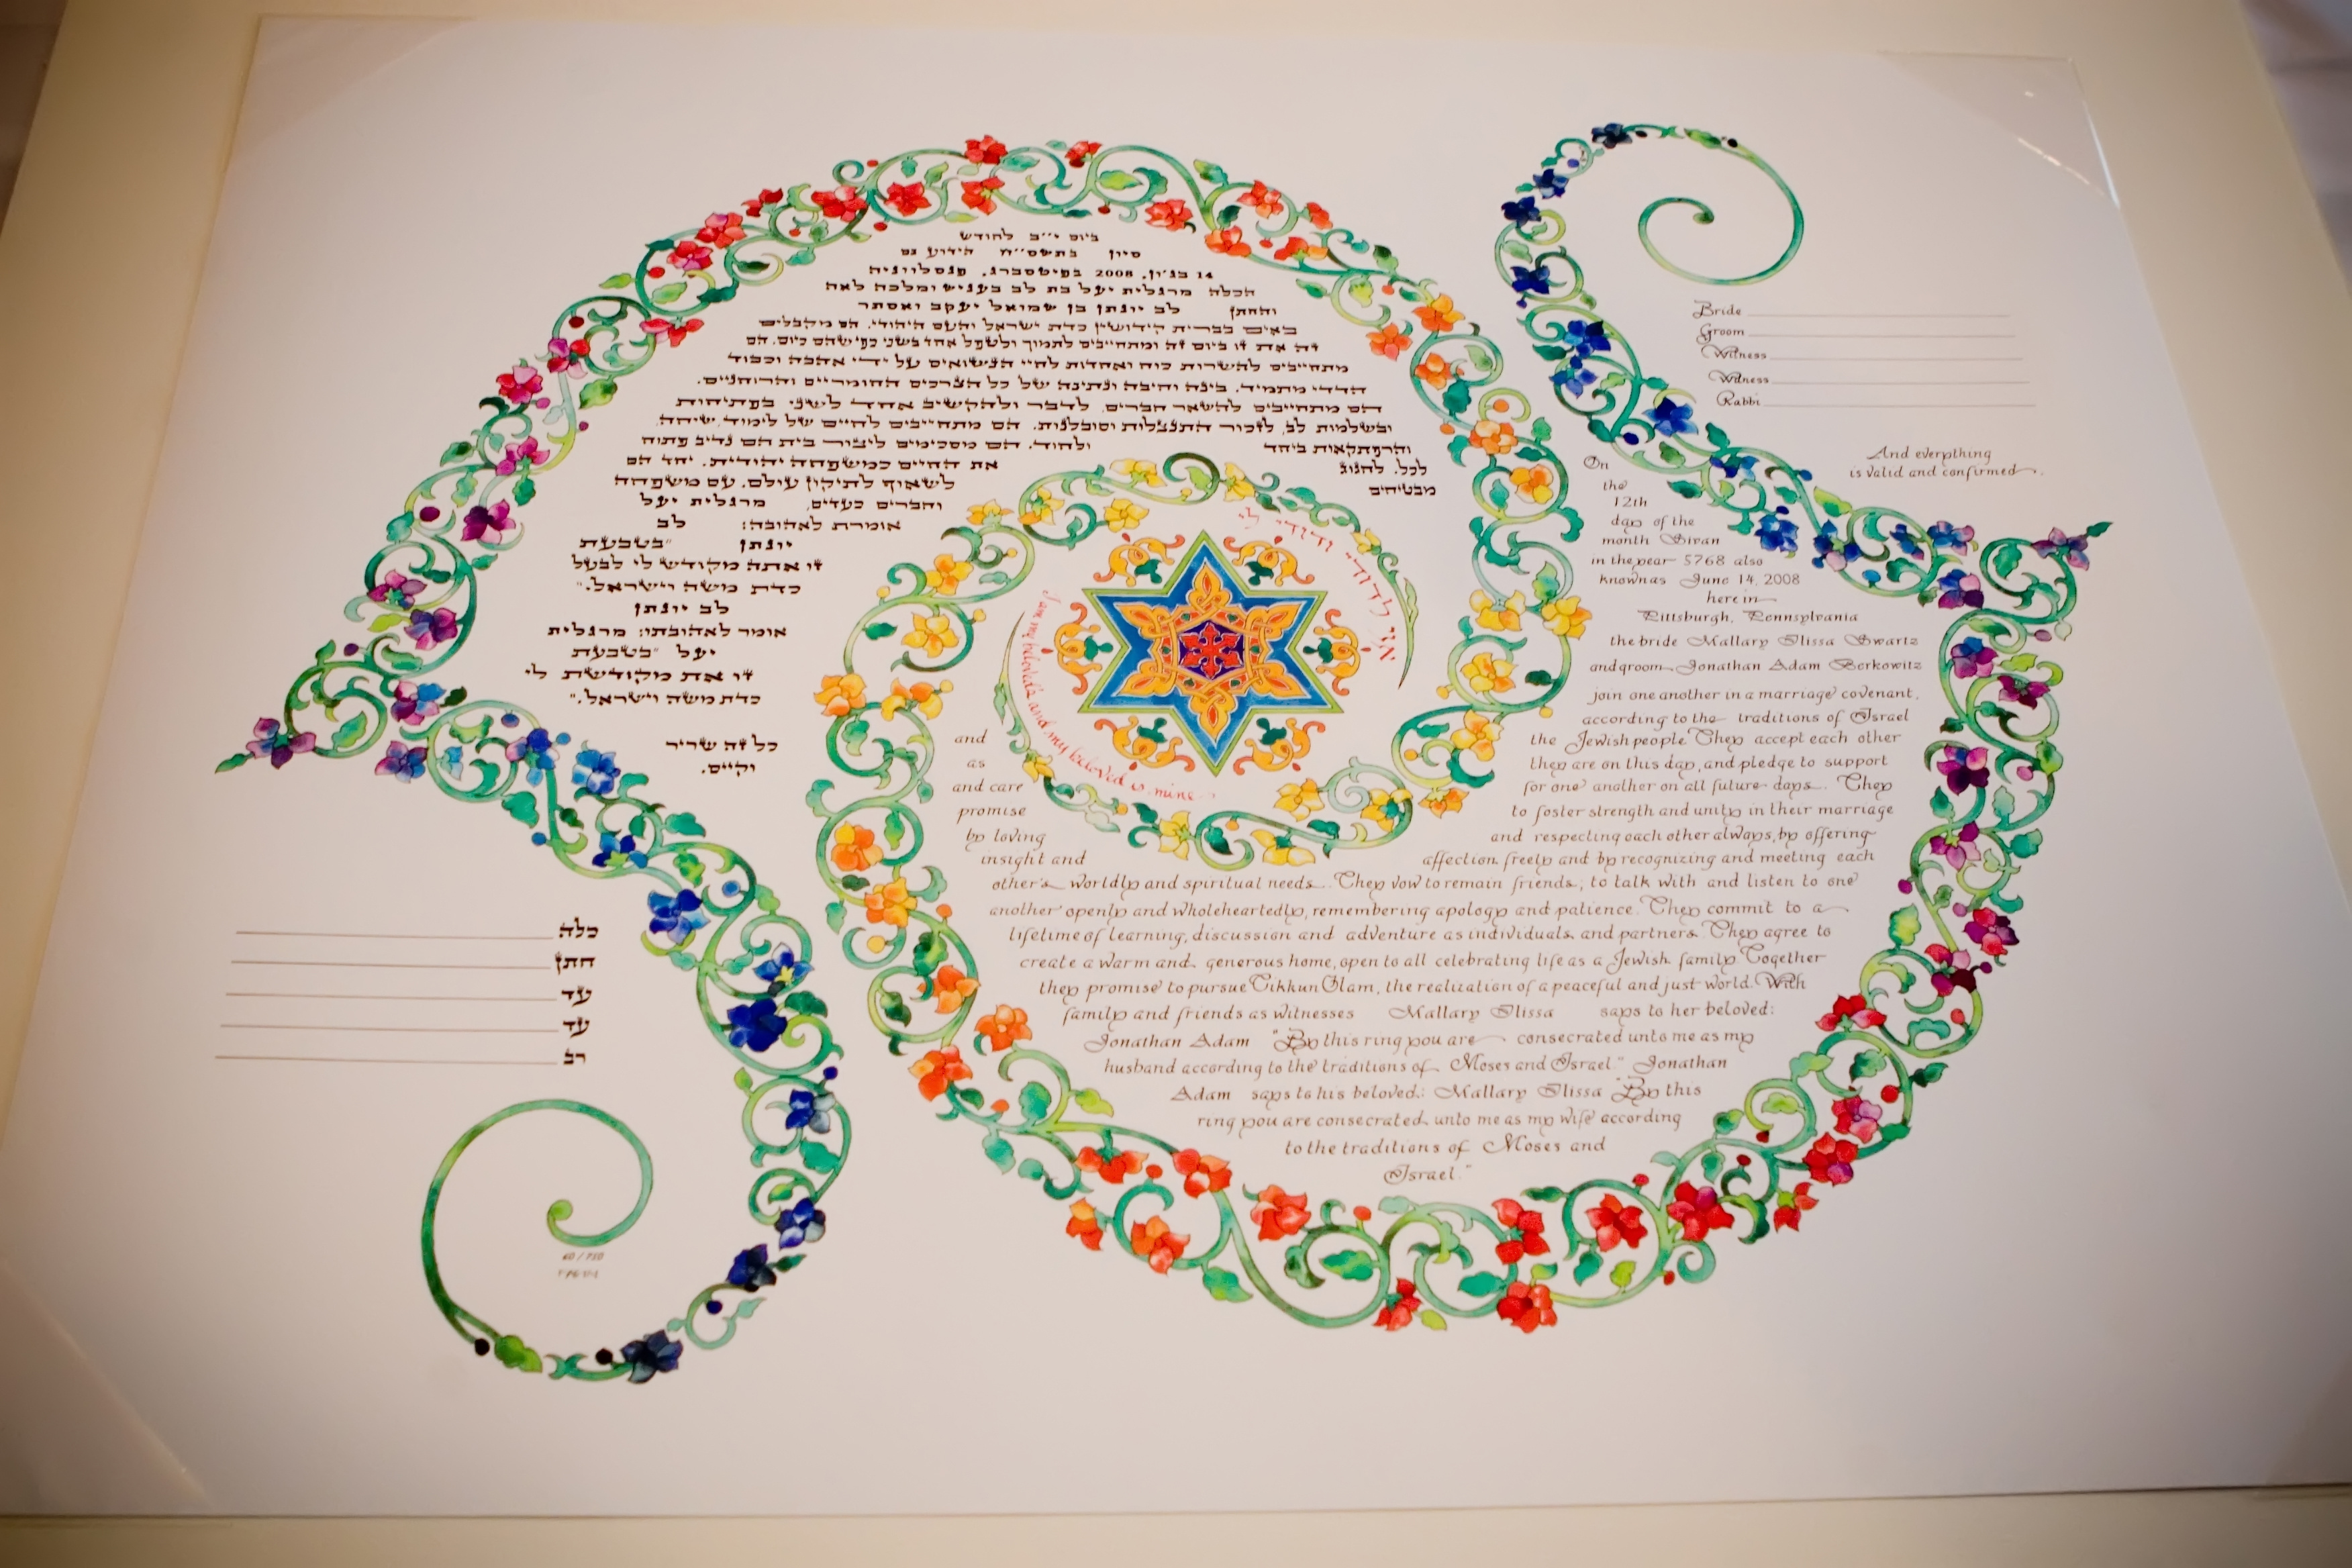 ביום י״ב לחודש
סיון בתשס״ח הידוע גם
14 בג׳ון, 2008 בפיטסברג, פנסלווניה
הכלה מרגלית יעל בת לב בעניש ומלכה לאה
והחתן לב יונתן בן שמואל יעקב ואסתר
באים בברית הידושין כדת ישראל והעם היהודי. הם מקבלים
זה את זו ביום זה ומתחייבים לתמוך ולטפל אחד בשני כפי שהם כיום. הם
מתחייבים להשרות כוח ואחדות לחיי הנשואים על ידי אהבה וכבוד
הדדי מתמיד, בינה וחיבה ונתינה של כל הצרכים החומריים והרוחניים.
הם מתחייבים להשאר חברים, לדבר ולהקשיב אחד לשני בפתיחות
ובשלמות לב, לזכור התנצלות וסובלנות. הם מתחייבים לחיים של לימוד, שיחה,
והרפתקאות ביחד ולחוד. הם מסכימים ליצור בית חם נדיב פתוח
לכל, לחגוג את החיים כמשפחה יהודית. יחד הם
מבטיחים לשאוף לתיקון עולם. עם משפחה
וחברים כעדים, מרגלית יעל
אומרת לאהובה: לב
יונתן "בטבעת
זו אתה מקודש לי לבעל
כדת משה וישראל."
לב יונתן
אומר לאהובתו: מרגלית
יעל "בטבעת
זו את מקודשת לי
כדת משה וישראל."
כל זה שריר
וקיים.
כלה
חתן
עד
עד
רב
אני לדודי ודודי לי
I am my beloved's and my beloved is mine
Bride
Groom
Witness
Witness
Rabbi
And everything
is valid and confirmed.
On
the
12th
day of the
month Sivan
in the year 5768 also
known as June 14, 2008
here in
Pittsburgh, Pennsylvania
the bride Mallary Ilissa Swartz
and groom Jonathan Adam Berkowitz
join one another in a marriage covenant,
according to the traditions of Israel
and the Jewish people They accept each other
as they are on this day, and pledge to support
and care for one another on all future days. They
promise to foster strength and unity in their marriage
by loving and respecting each other always, by offering
insight and affection freely and by recognizing and meeting each
other's worldly and spiritual needs. They vow to remain friends, to talk with and listen to one
another openly and wholeheartedly, remembering apology and patience. They commit to a
lifetime of learning, discussion and adventure as individuals and partners. They agree to
create a warm and generous home, open to all celebrating life as a Jewish family Together
they promise to pursue Tikkun Olam, the realization of a peaceful and just world. With
family and friends as witnesses Mallary Ilissa says to her beloved:
Jonathan Adam "By this ring you are consecrated unto me as my
husband according to the traditions of Moses and Israel." Jonathan
Adam says to his beloved: Mallary Ilissa "By this
ring you are consecrated unto me as my wife according
to the traditions of Moses and
Israel."
60/750